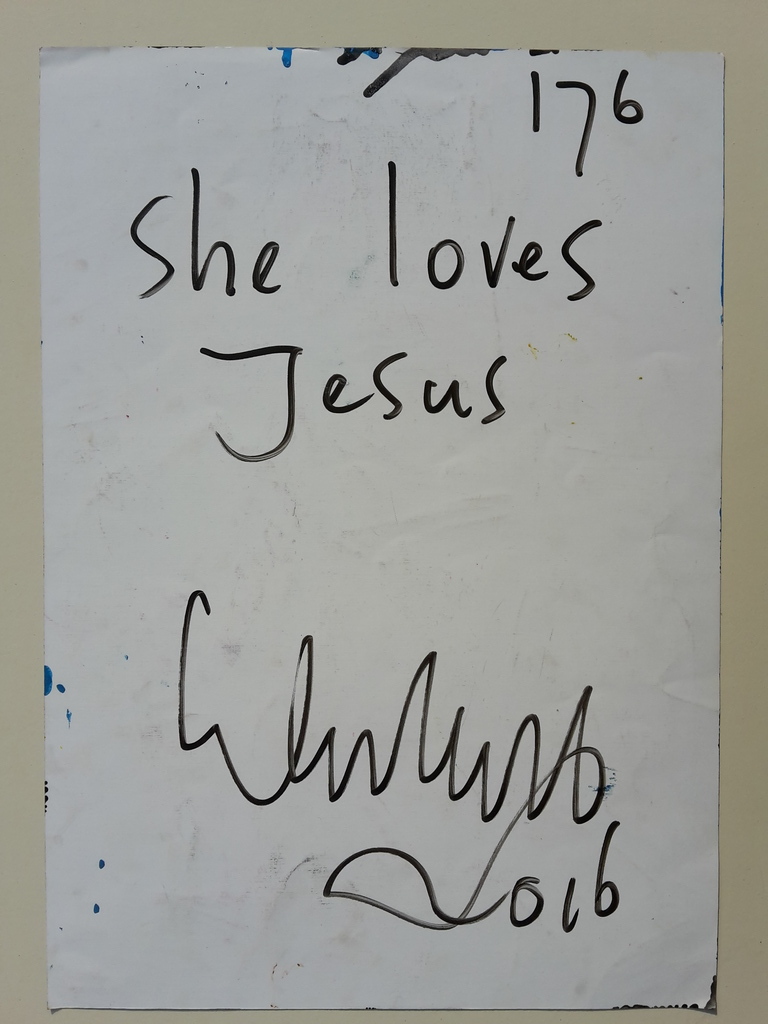 176
She loves
Jesus
2016